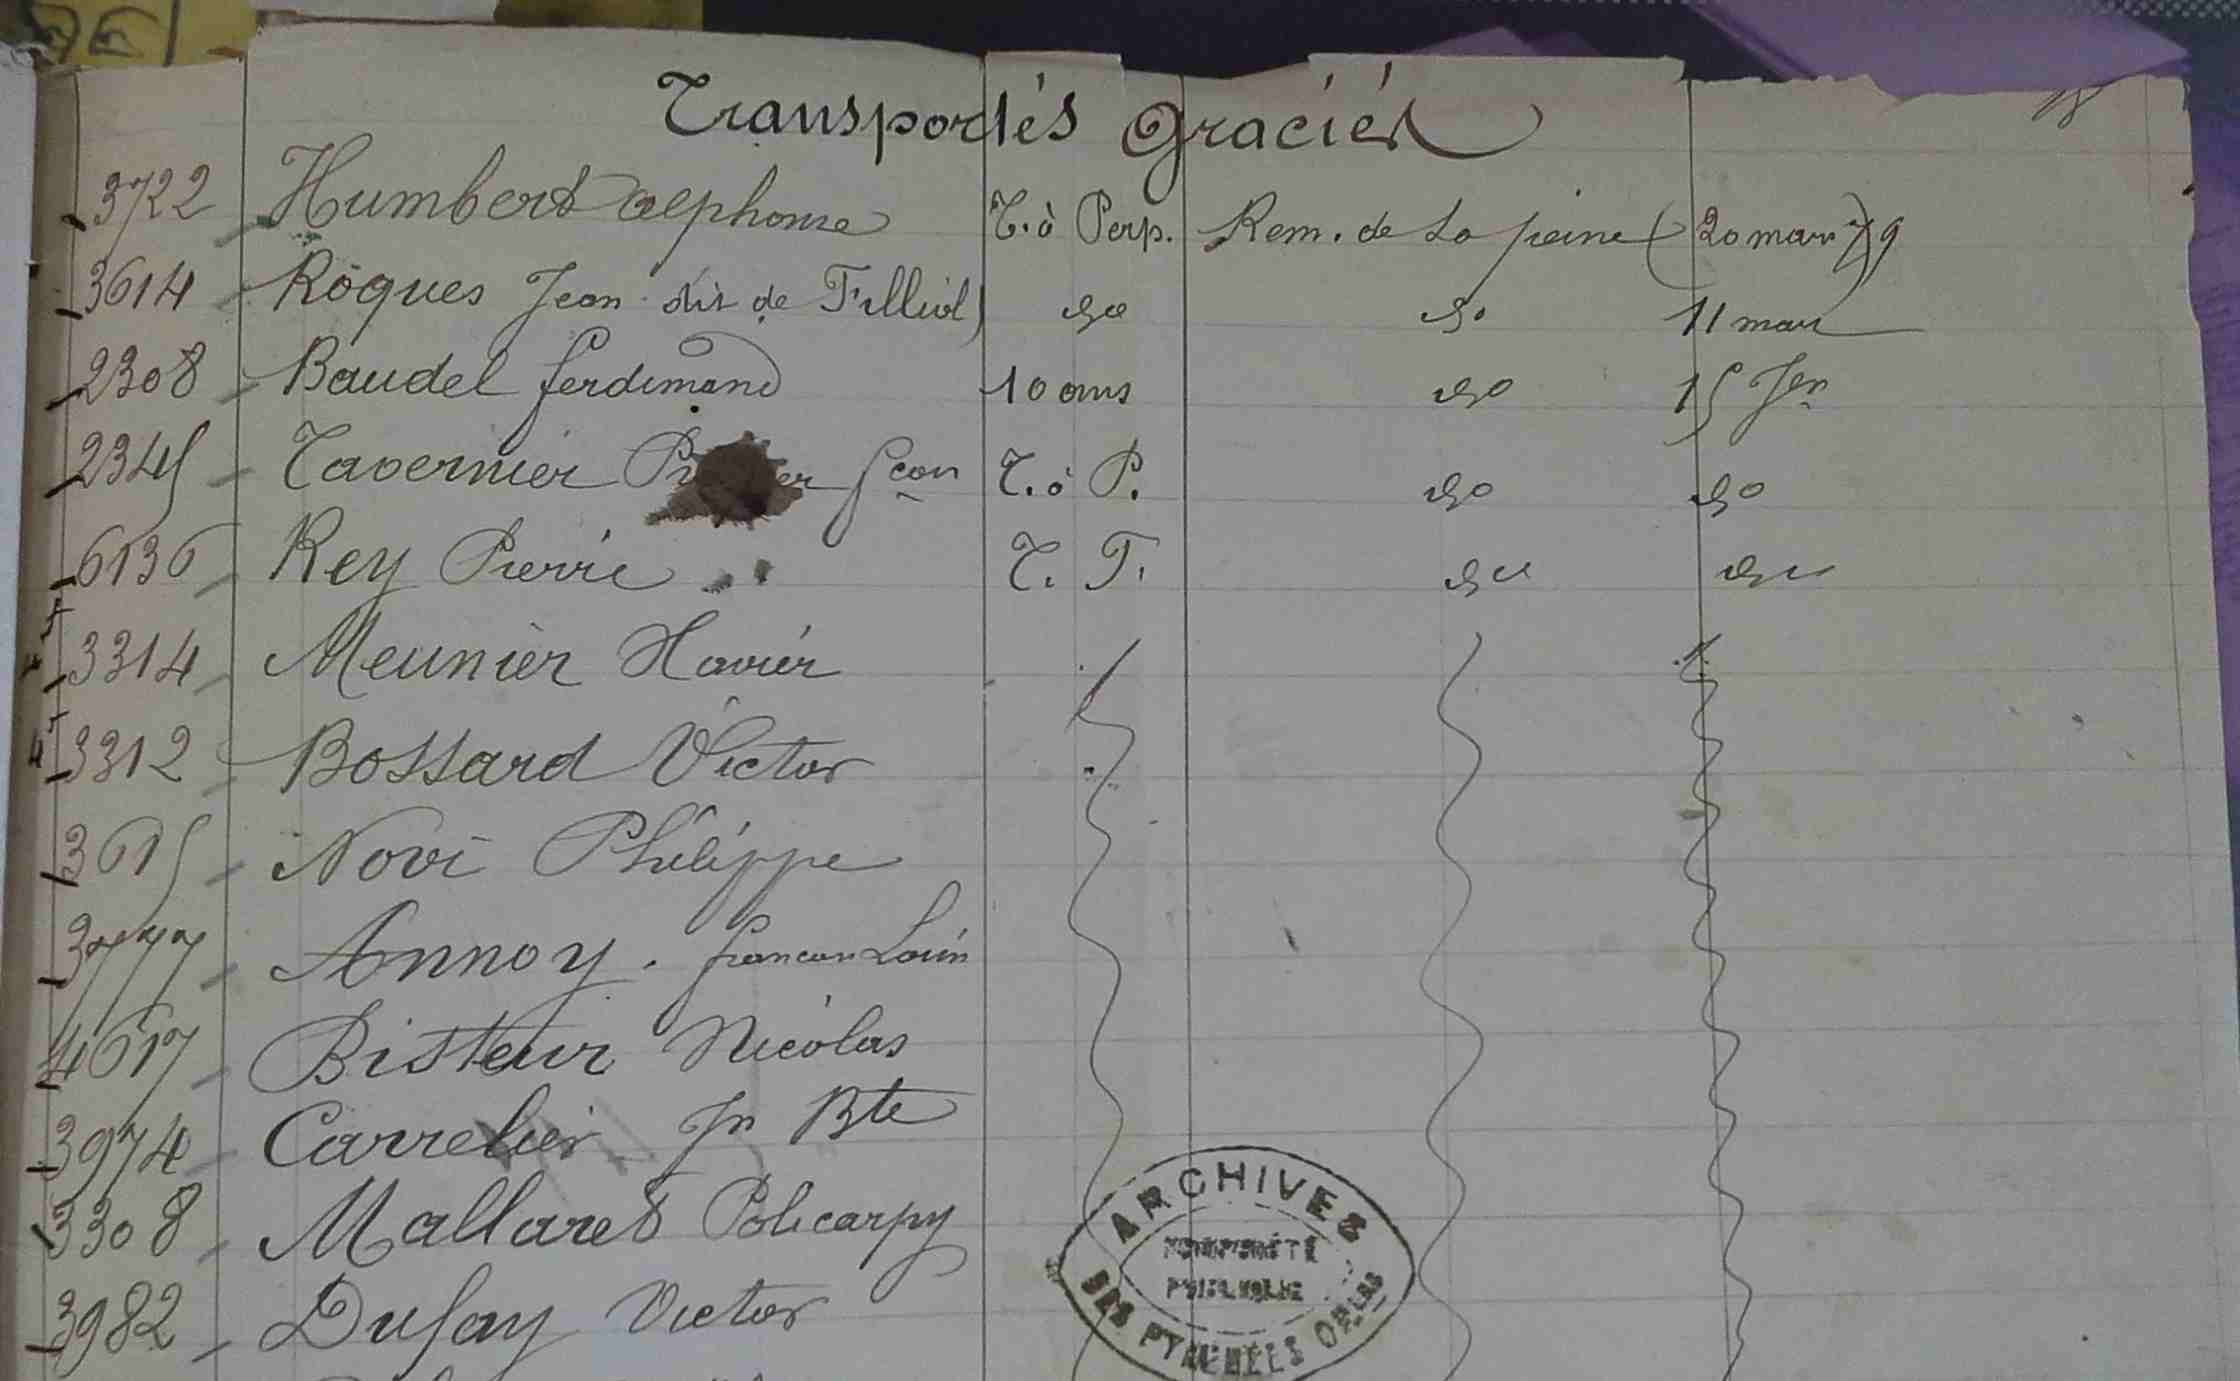 18
Transportés Graciés
3722 Humbert Alphonse T. à Perp. Rem. de la peine (20 mars 79)
3614 Roques Jean dit de Filliol) do do 11 mars
2308 Baudel ferdinand 10 ans do do 15 Jer
2345 Tavernier er Jean T. à P. do do
6136 Rey Pierre T. T. do do
3314 Meunier Xavier
3312 Bossard Victor
3615 Novi Philippe
3777 Annoy. francois Louis
4617 Bisteur Nicolas
3974 Carrelier Jn Bte
3308 Mallaret Policarpy
3982 Dufay Victor
ARCHIVES
PROPRIÉTÉ
PUBLIQUE
DES PYRÉNÉES ORLES